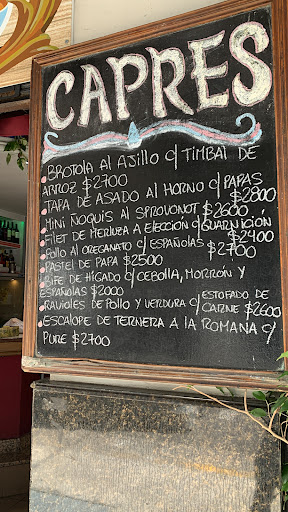 CAPRES
BROTOLA AL AJILLO C/ TIMBAL DE
ARROZ $2700
TAPA DE ASADO AL HORNO C/ PAPAS
$2800
MINI ÑOQUIS AL SPROVONOT $2600
FILET DE MERLUZA A ELECCIÓN C/ GUARNICIÓN
$2400
POLLO AL OREGANATO C/ ESPAÑOLAS $2700
PASTEL DE PAPA $2500
BIFE DE HÍGADO C/ CEBOLLA, MORRÓN Y
ESPAÑOLAS $2000
RAVIOLES DE POLLO Y VERDURA C/ ESTOFADO DE
CARNE $2600
ESCALOPE DE TERNERA A LA ROMANA C/
PURE $2700